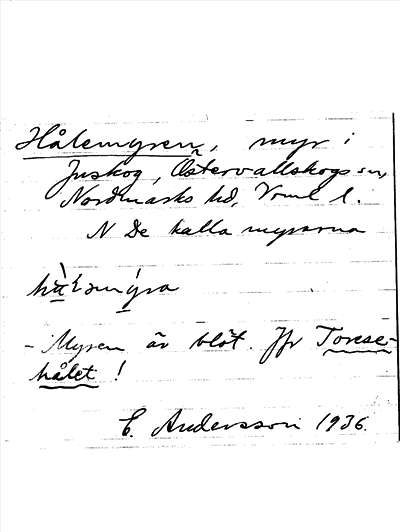 Hålemyren, myr i
Juskog, Östervallskogs sn,
Nordmarks hd, Vrml l.
N De kalla myrarna
- Myren är blöt. Jfr Torese-
hålet!
E. Andersson 1936.